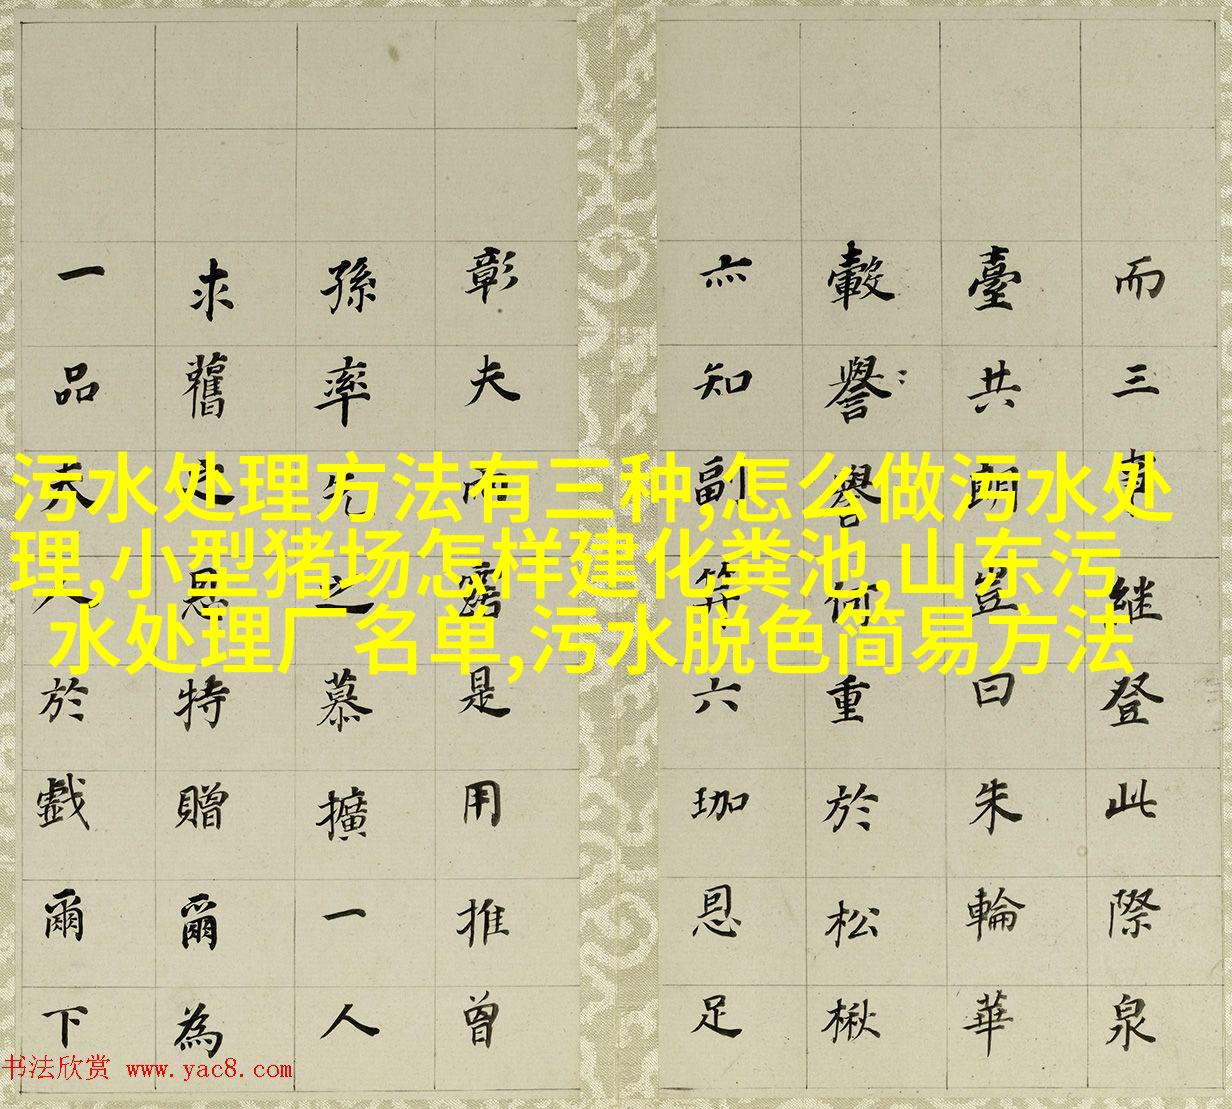 而三事継登此際泉
臺共朝豈曰朱輪華
轂譽譽何重於松楸
亦知副笄六珈恩足
彰夫雨露是用推曾
孫率先之慕擴一人
求舊之恩特贈爾為
一品夫人於戲爾下
污水处理方法有三种,怎么做污水处
理,小型猪场怎样建化粪池,山东污
水处理厂名单,污水脱色简易方法
书法欣赏 www.yac8.com